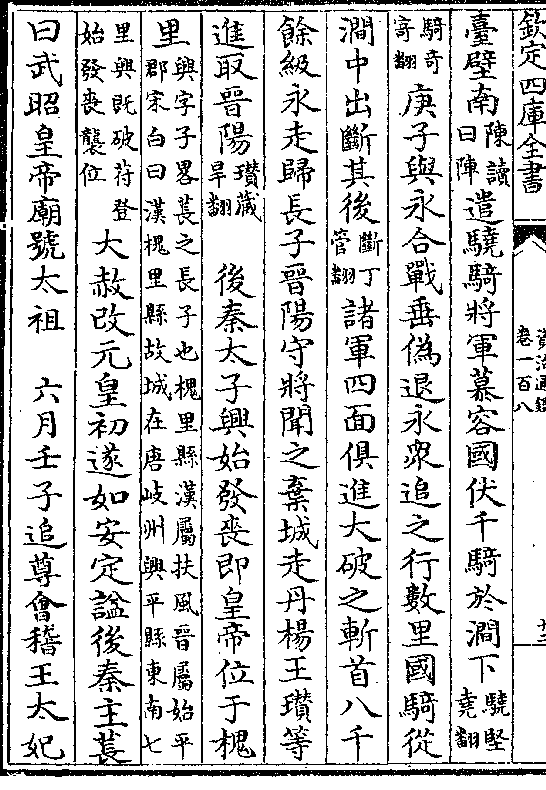 欽定四庫全書
資治通鑑
卷一百八
十二
臺壁南陳讀曰陣遣驍騎將軍慕容國伏千騎於澗下驍堅堯翻
騎奇寄翻庚子與永合戰垂偽退永眾追之行數里國騎從
澗中出斷其後斷丁管翻諸軍四面俱進大破之斬首八千
餘級永走歸長子晉陽守將聞之棄城走丹楊王瓚等
進取晉陽瓚藏旱翻 後秦太子興始發喪即皇帝位于槐
里興字子畧萇之長子也槐里縣漢屬扶風晉屬始平郡宋白曰漢槐里縣故城在唐岐州興平縣東南七
里興既破苻登始發喪襲位大赦改元皇初遂如安定諡後秦主萇
曰武昭皇帝廟號太祖 六月壬子追尊會稽王太妃